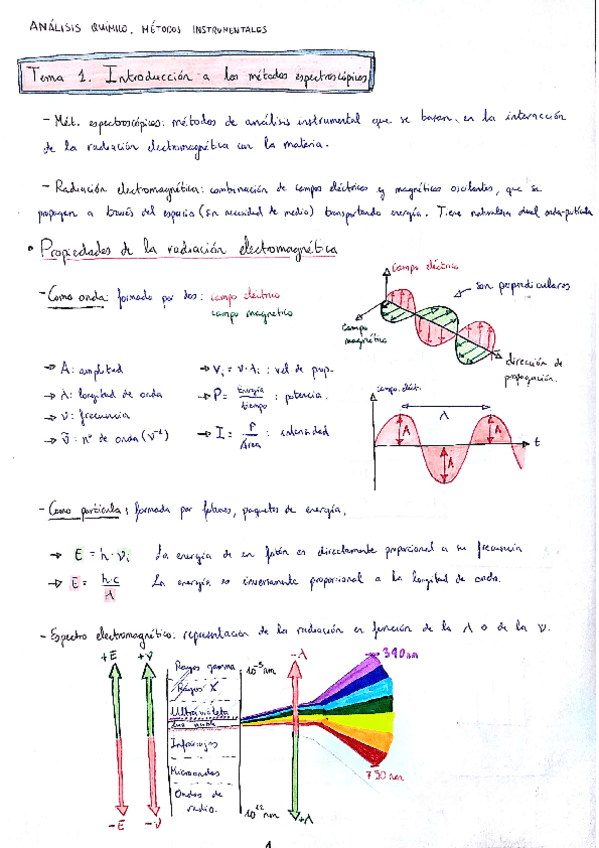 ANÁLISIS QUÍMICO, MÉTODOS INSTRUMENTALES
Tema 1. Introducción a los métodos espectroscópicos
- Mét. espectroscópicos: métodos de análisis instrumental que se basan en la interacción
de la radiación electromagnética con la materia.
- Radiación electromagnética: combinación de campos eléctricos y magnéticos oscilantes, que se
propagan a través del espacio (sin necesidad de medio) transportando energía. Tiene naturaleza dual onda-partícula
• Propiedades de la radiación electromagnética
- Como onda: formada por dos: campo eléctrico
campo magnético
Campo eléctrico
son perpendiculares
Campo magnético
dirección de propagación.
→ A: amplitud
→ λ: longitud de onda
→ ν: frecuencia
→ ν̃: nº de onda (ν⁻¹)
→ Vᵢ = ν·λᵢ : vel de prop.
→ P = Energía / tiempo : potencia.
→ I = P / Área : intensidad
campo eléct.
λ
A
A
A
t
- Como partícula: formada por fotones, paquetes de energía.
→ E = h·νᵢ La energía de un fotón es directamente proporcional a su frecuencia
→ E = h·c / λ La energía es inversamente proporcional a la longitud de onda.
- Espectro electromagnético: representación de la radiación en función de la λ o de la ν.
+E +ν
Rayos gamma
10⁻⁵ nm
-λ
390 nm
Rayos X
Ultravioleta
Luz visible
Infrarrojos
Microondas
790 nm
Ondas de
radio.
10¹² nm
+λ
-E -ν
1